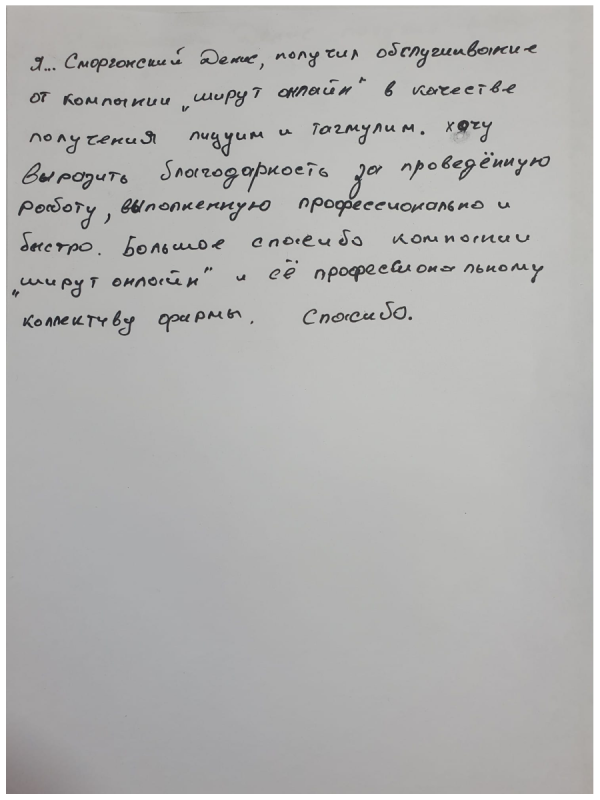 Я... Сморгонский Денис, получил обслуживание
от компании „ширут онлайн" в качестве
получения пицуим и тагмулим. хочу
выразить благодарность за проведённую
работу, выполненную профессионально и
быстро. Большое спасибо компании
„ширут онлайн" и её профессиональному
коллективу фирмы. Спасибо.